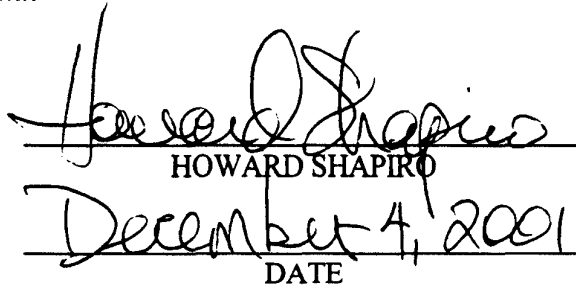 Howard Shapiro
HOWARD SHAPIRO
December 4, 2001
DATE